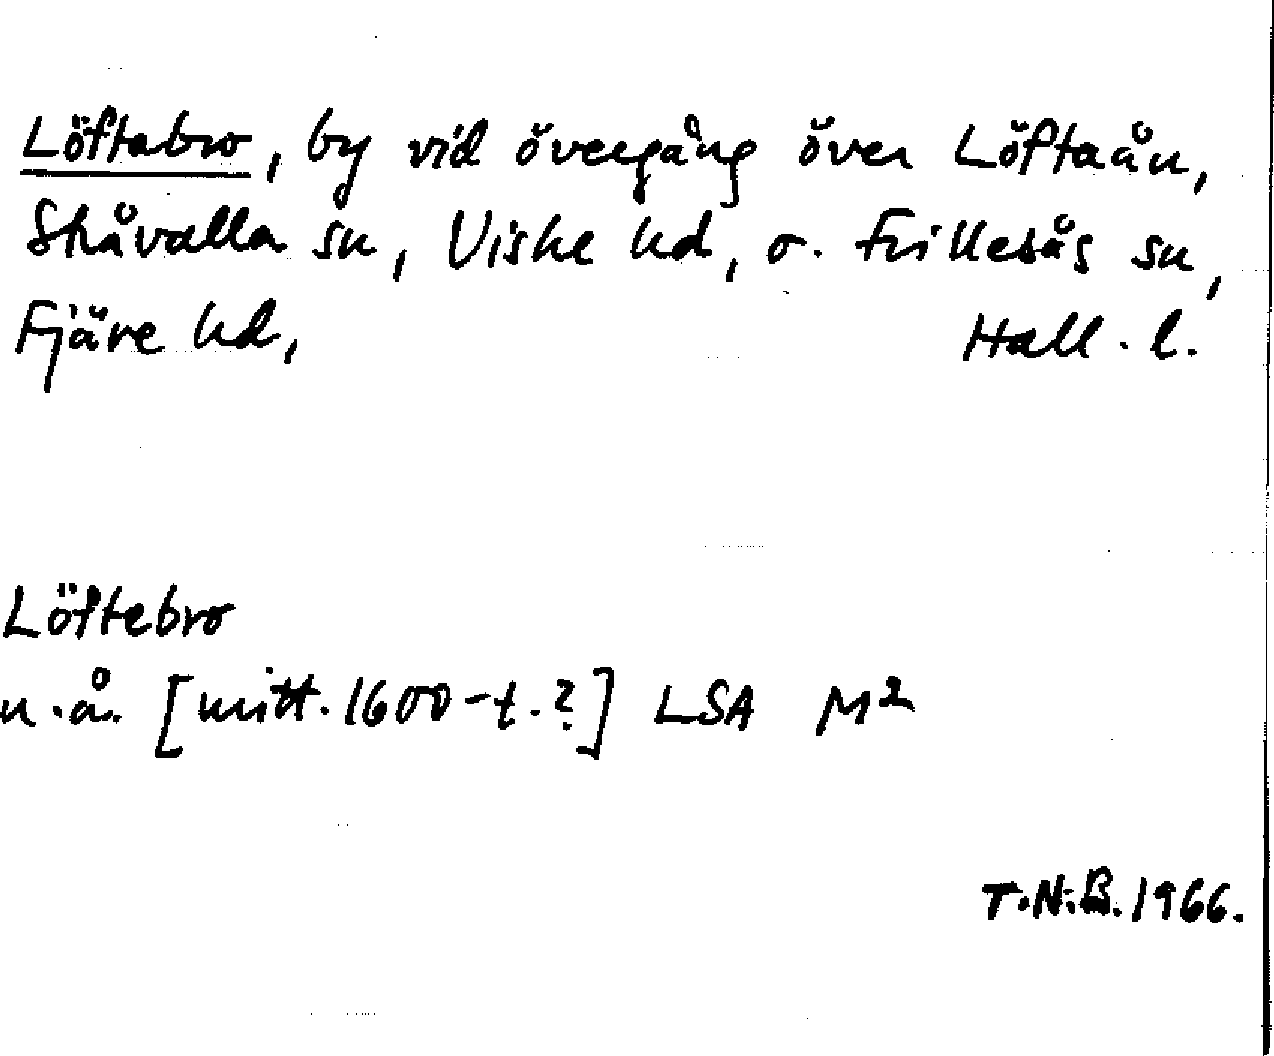 Löftabro, by vid övergång över Löftaån,
Stråvalla sn, Viske hd, o. Frillesås sn,
Fjäre hd, Hall. l.
Löftebro
u.å. [mitt. 1600-t.?] LSA M2
T.N.B. 1966.